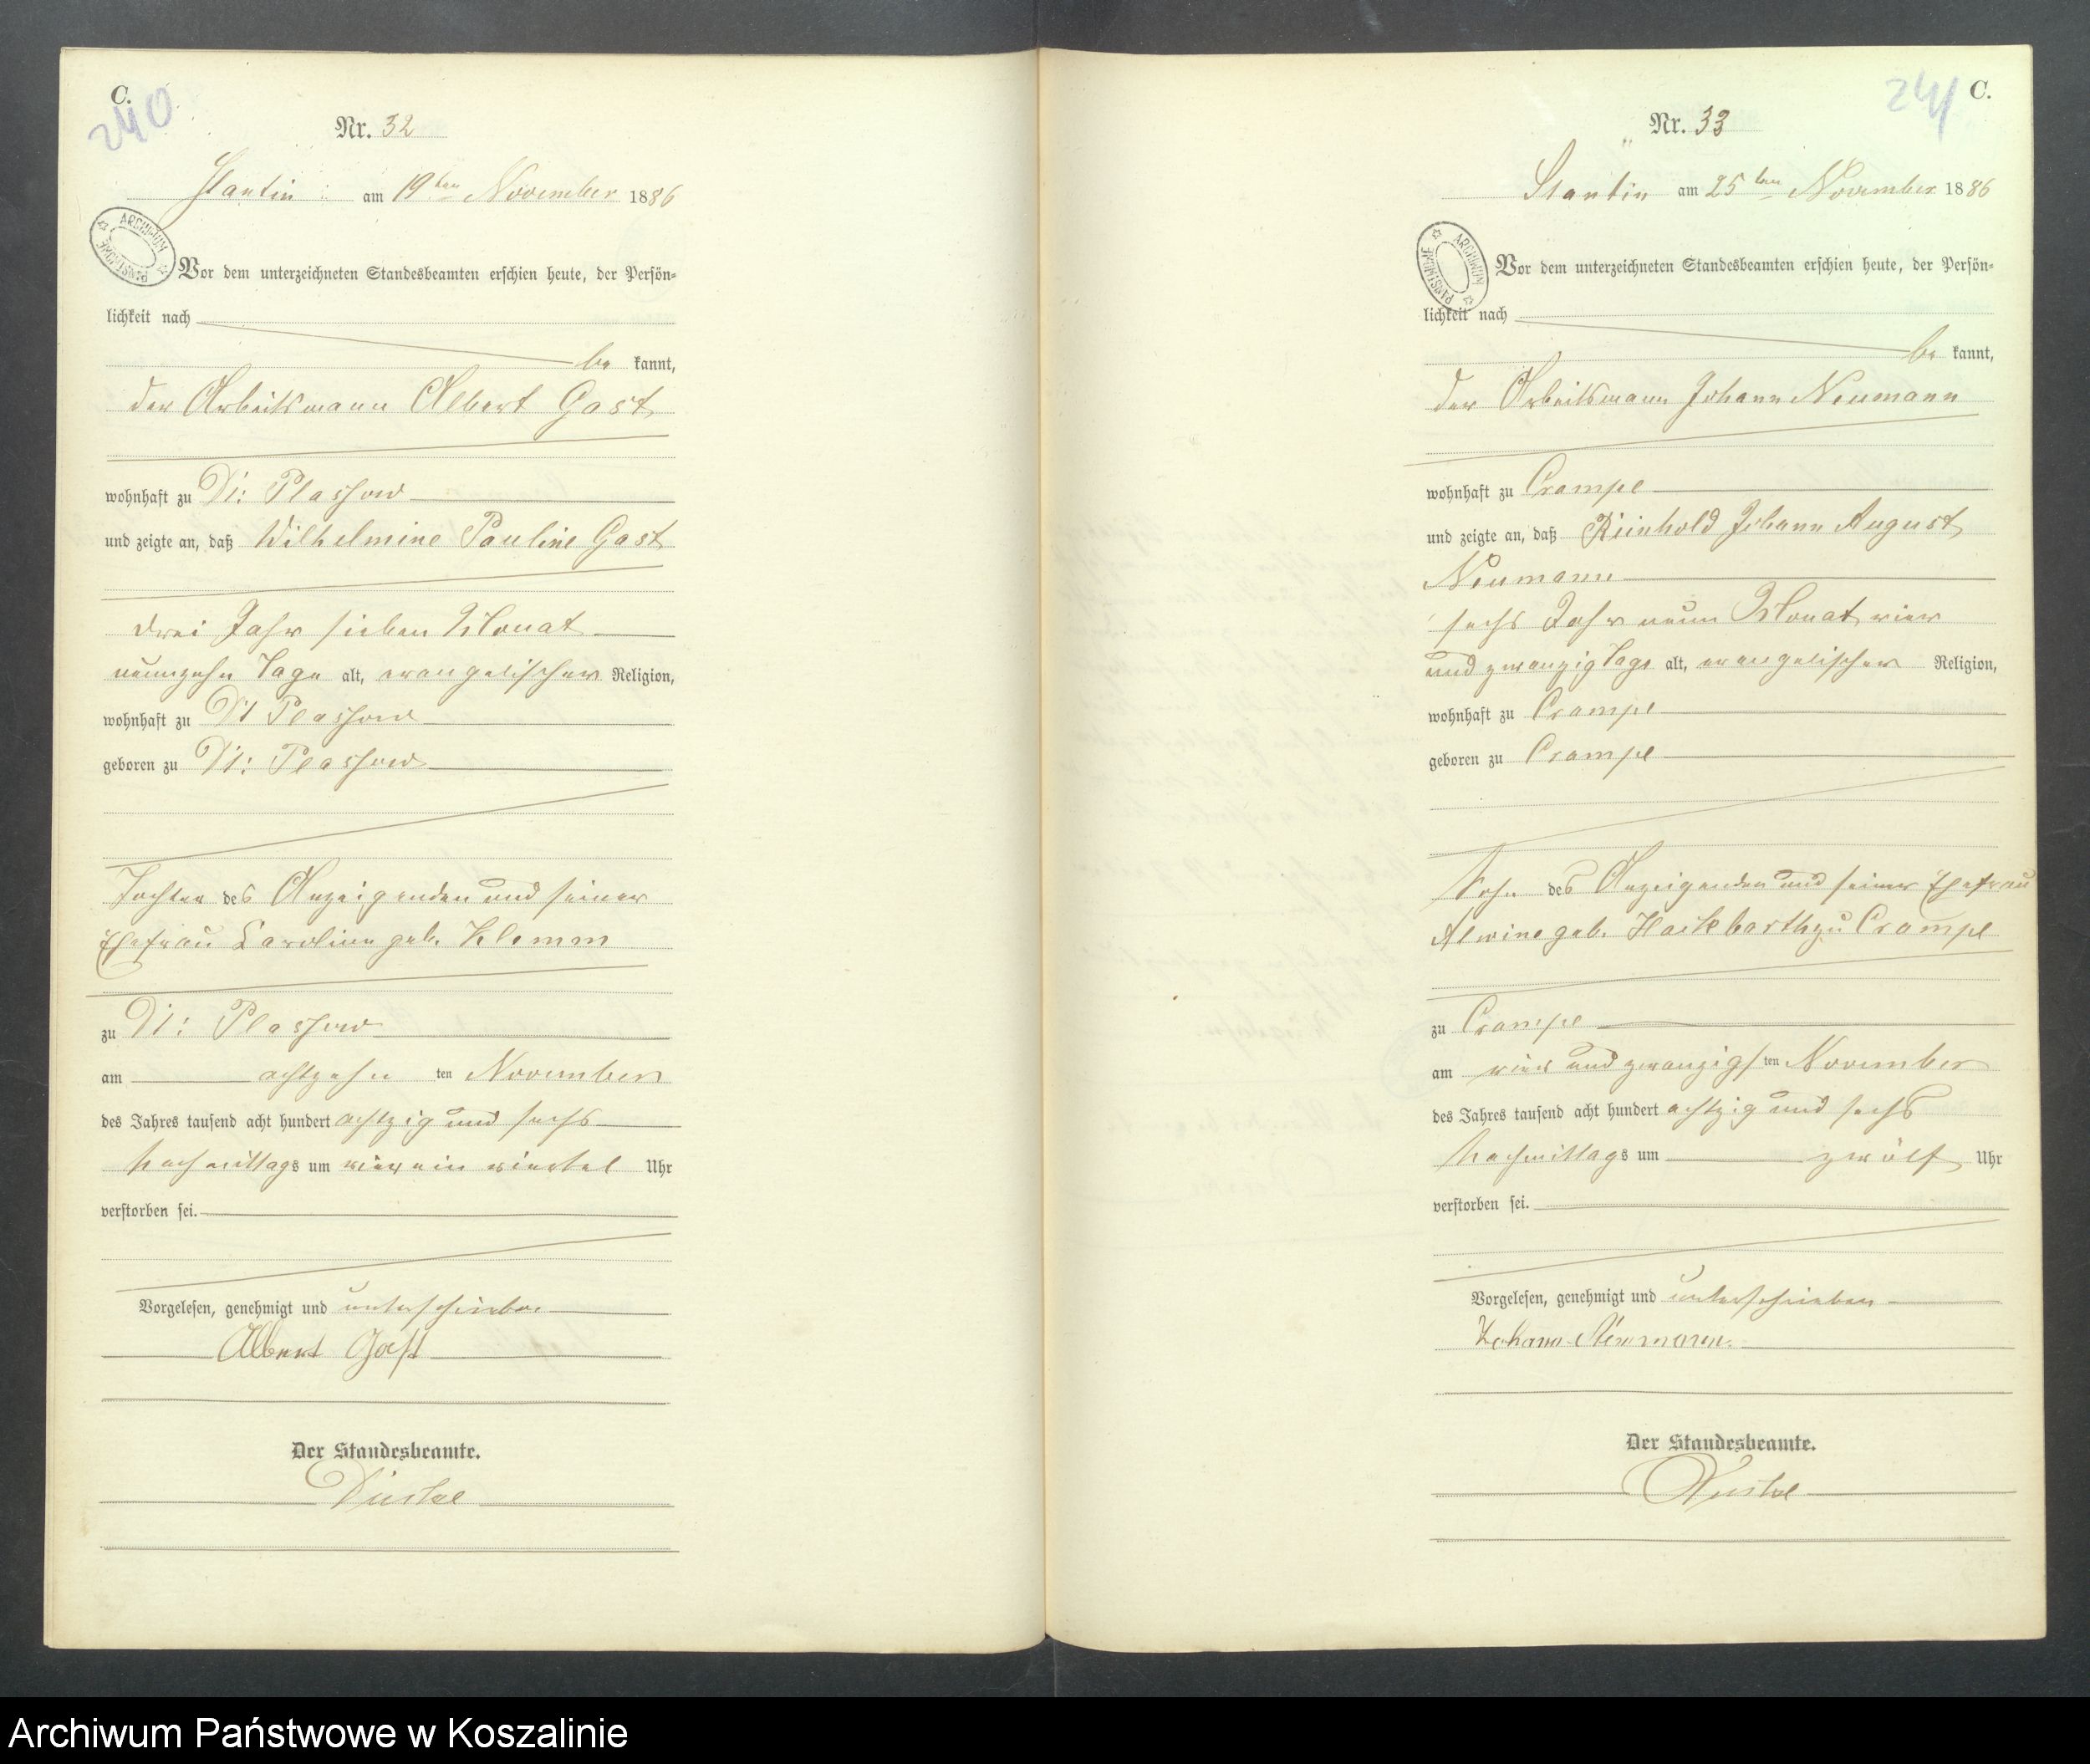 C.
240
Nr. 32
Stantin am 19ten November 1886
ARCHIWUM PAŃSTWOWE
Vor dem unterzeichneten Standesbeamten erschien heute, der Persön-
lichkeit nach
be kannt,
der Arbeitsmann Albert Gast
wohnhaft zu Dt: Plassow
und zeigte an, daß Wilhelmine Pauline Gast
drei Jahr sieben Monat
neunzehn Tage alt, evangelischer Religion,
wohnhaft zu Dt Plassow
geboren zu Dt: Plassow
Tochter des Anzeigenden und seiner
Ehefrau Caroline geb. Klemm
zu Dt: Plassow
am achtzehn ten November
des Jahres tausend acht hundert achtzig und sechs
Nachmittags um vier ein viertel Uhr
verstorben sei.
Vorgelesen, genehmigt und unterschrieben
Albert Gast
Der Standesbeamte.
241
C.
Nr. 33
Stantin am 25ten November 1886
ARCHIWUM PAŃSTWOWE
Vor dem unterzeichneten Standesbeamten erschien heute, der Persön-
lichkeit nach
be kannt,
der Arbeitsmann Johann Neumann
wohnhaft zu Crampe
und zeigte an, daß Reinhold Johann August
Neumann
sechs Jahr neun Monat vier
und zwanzig Tage alt, evangelischer Religion,
wohnhaft zu Crampe
geboren zu Crampe
Sohn des Anzeigenden und seiner Ehefrau
Alwine geb. Hackbarth zu Crampe
zu Crampe
am vier und zwanzigs ten November
des Jahres tausend acht hundert achtzig und sechs
Nachmittags um zwölf Uhr
verstorben sei.
Vorgelesen, genehmigt und unterschrieben
Johann Neumann.
Der Standesbeamte.
Archiwum Państwowe w Koszalinie